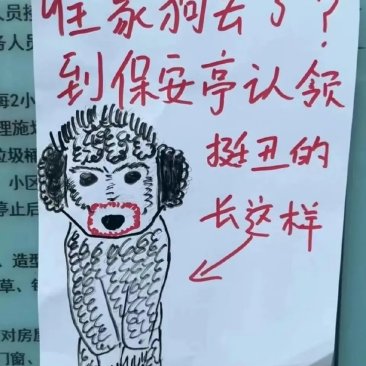 谁家狗丢了?
到保安亭认领
挺丑的
长这样
人员按
务人员
每2小
理施
垃圾桶
小区
停止后
、造型
草、
对房屋
门窗、